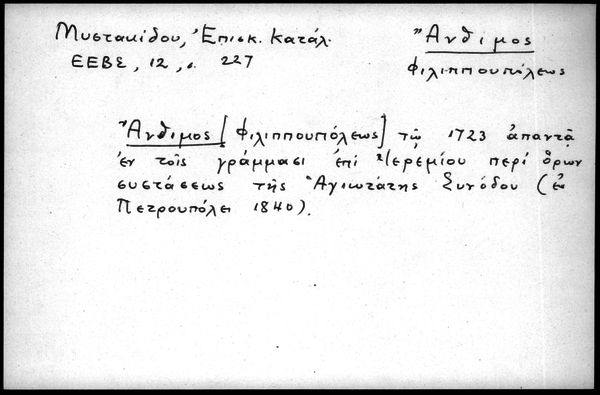 Μυστακίδου, Ἐπισκ. Κατάλ.
ΕΕΒΣ, 12, σ. 227
Ἄνθιμος
Φιλιππουπόλεως
Ἄνθιμος [Φιλιππουπόλεως] τῷ 1723 ἀπαντᾷ
ἐν τοῖς γράμμασι ἐπί Ἱερεμίου περί ὅρων
συστάσεως τῆς Ἁγιωτάτης Συνόδου (ἐν
Πετρουπόλει 1840).